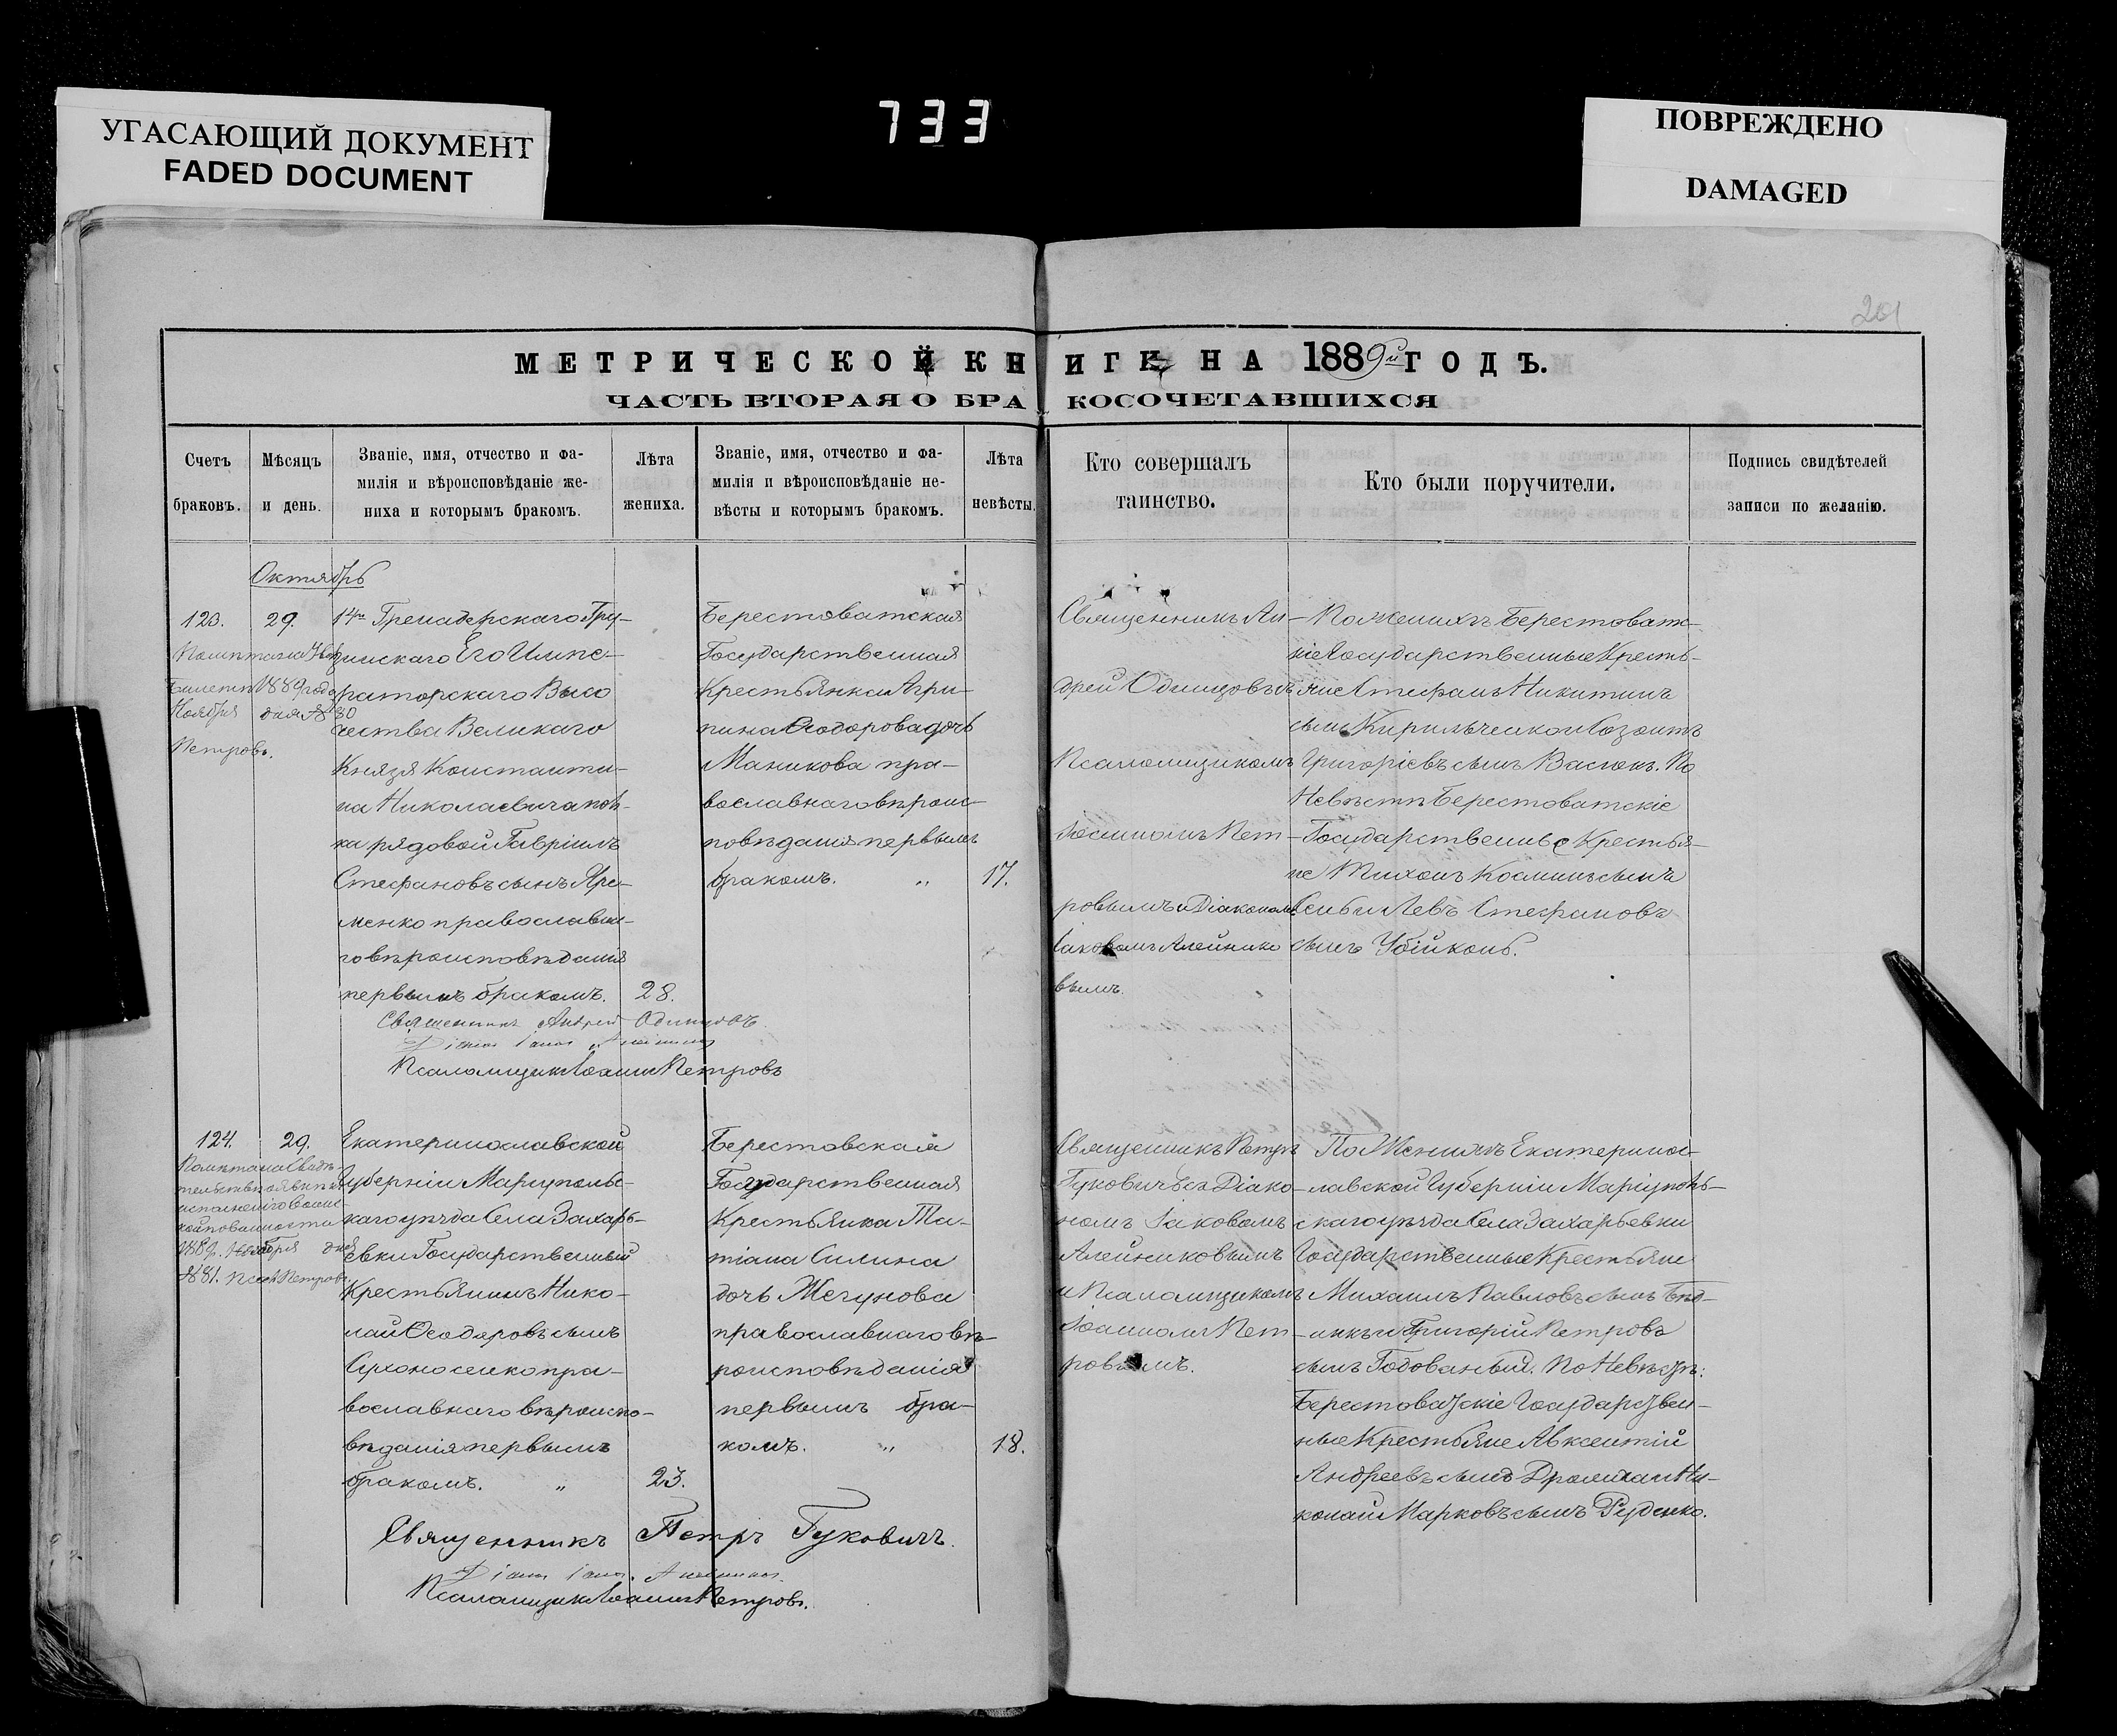 УГАСАЮЩИЙ ДОКУМЕНТ
FADED DOCUMENT
733
ПОВРЕЖДЕНО
DAMAGED
201
МЕТРИЧЕСКОЙ КНИГК НА 1889й ГОДЪ.
ЧАСТЬ ВТОРАЯ О БРАКОСОЧЕТАВШИХСЯ
Счетъ
браковъ.
Мѣсяцъ
и день.
Званіе, имя, отчество и фа-
милія и вѣроисповѣданіе же-
ниха и которымъ бракомъ.
Лѣта
жениха.
Званіе, имя, отчество и фа-
милія и вѣроисповѣданіе не-
вѣсты и которымъ бракомъ.
Лѣта
невѣсты.
Кто совершалъ
таинство.
Кто были поручители.
Подпись свидѣтелей
записи по желанію.
Октябрь
123.
29.
Билетъ 1889 года
Ноября дня № 80
Петровъ.
14го Гренадерскаго Гру-
зинскаго Его Импе-
раторскаго Высо
чества Великаго
Князя Константи-
на Николаевича пол-
ка рядовой Гавріилъ
Стефановъ сынъ Яре-
менко православна-
го вѣроисповѣданія
первымъ бракомъ.
28.
Берестоватская
Государственная
Крестьянка Агри-
пина Ѳеодорова дочь
Маникова пра-
вославнаго вѣроис-
повѣданія первымъ
бракомъ. „
17.
Священникъ Ан-
дрей Одинцовъ съ
Псаломщикомъ
Іоанномъ Пет-
ровымъ и Діакономъ
Іаковомъ Алейнико
вымъ.
По женихѣ Берестоват-
кіе Государственные Кресть-
яне Стефанъ Никитинъ
сынъ Кирильченко и Созонтъ
Григоріевъ сынъ Васюкъ. По
Невѣстѣ Берестоватскіе
Государственые Крестья-
не Тихонъ Косминъ сынъ
Левъ Стефановъ
сынъ Убійконь.
Священникъ Андрей Одинцовъ
Псаломщикъ Іоаннъ Петровъ
124.
29.
1889. Ноября дня
№ 81. Псал. Петровъ.
Екатеринославской
Губерніи Маріуполь-
скаго уѣзда Села Захарь-
евки Государственный
Крестьянинъ Нико-
лай Ѳеодоровъ сынъ
Сухоносенко пра-
вославнаго вѣроиспо-
вѣданія первымъ
бракомъ. „
23.
Берестовская
Государственная
Крестьянка Та-
тіана Силина
дочь Жегунова
православнаго вѣ-
роисповѣданія
первымъ бра-
комъ. „
18.
Священникъ Петръ
Гуковичъ съ Діако-
номъ Іаковомъ
Алейниковымъ
и Псаломщикомъ
Іоанномъ Пет-
ровымъ.
По Женихѣ Екатеринос-
лавской Губерніи Маріуполь-
скаго уѣзда Села Захарьевки
Государственные Крестьяне
Михаилъ Павловъ сынъ Бѣд-
никъ и Григорій Петровъ
сынъ Годованый. По Невѣстѣ:
Берестоватскіе Государствен-
ные Крестьяне Авксентій
Андреевъ сынъ и Ни-
колай Марковъ сынъ Руденко.
Священникъ Петръ Гуковичъ.
Псаломщикъ Іоаннъ Петровъ.